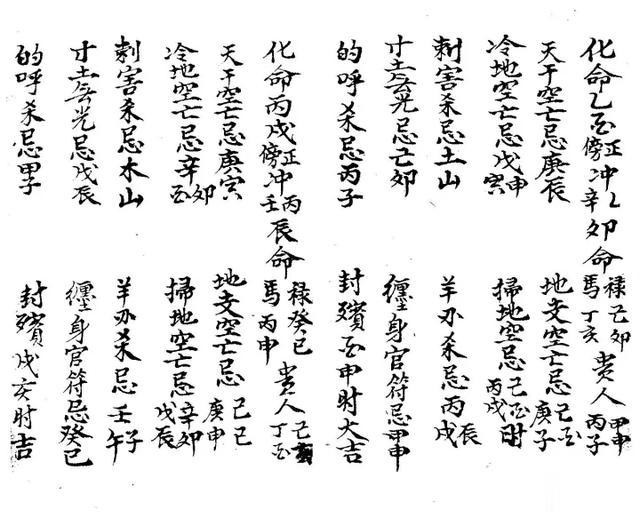 化命乙酉正傍冲乙辛卯命祿己卯馬丁亥貴人甲申丙子
天干空亡忌庚辰 地支空亡忌己酉庚子
冷地空亡忌戊申寅 掃地空忌己酉丙戌时
刺害杀忌土山 羊刃杀忌丙戌辰
寸土無光忌己卯 纏身官符忌甲申
的呼杀忌丙子 封殯酉申时大吉
化命丙戌正傍冲丙壬辰命祿癸巳馬丙申貴人己亥丁酉
天干空亡忌庚寅 地支空亡忌己巳庚申
冷地空亡忌辛卯酉 掃地空亡忌辛卯戊辰
刺害杀忌木山 羊刃杀忌壬子午
寸土無光忌戊辰 纏身官符忌癸巳
的呼杀忌甲子 封殯戌亥时吉